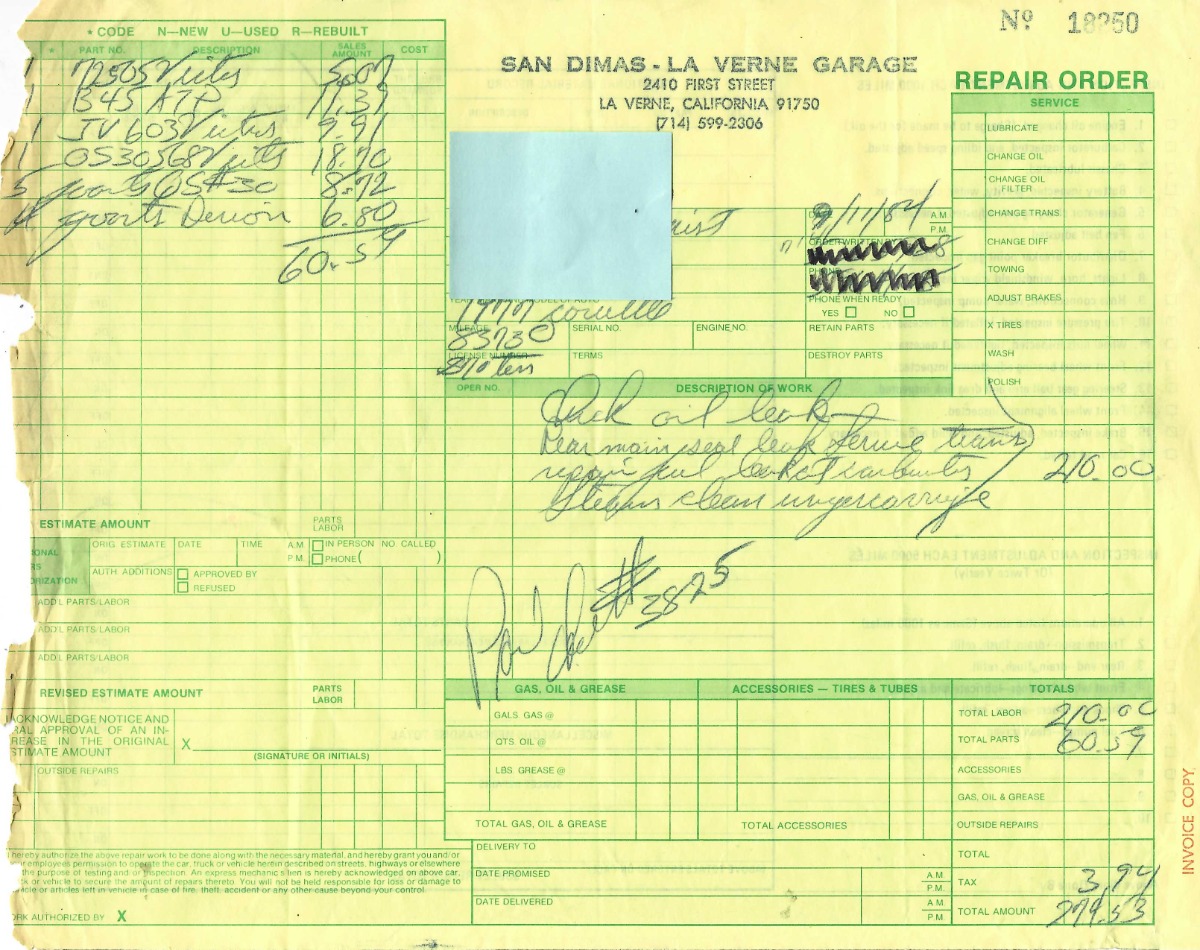 Nº 18250
* CODE N—NEW U—USED R—REBUILT
* PART NO. DESCRIPTION SALES AMOUNT COST
1 72505 Victs 5.07
1 B45 ATP 11.37
1 JV 603 Victs 9.91
1 OS30568 Victs 18.70
5 quarts QS #30 8.72
4 quarts Dexron 6.80
60.57
SAN DIMAS - LA VERNE GARAGE
2410 FIRST STREET
LA VERNE, CALIFORNIA 91750
(714) 599-2306
REPAIR ORDER
SERVICE
LUBRICATE
CHANGE OIL
CHANGE OIL FILTER
CHANGE TRANS.
CHANGE DIFF
TOWING
ADJUST BRAKES
X TIRES
WASH
POLISH
DATE /11/84 A.M.
P.M.
ORDER WRITTEN BY
PHONE
PHONE WHEN READY
YES NO
YEAR MAKE AND MODEL OF AUTO
MILEAGE 83730 SERIAL NO. ENGINE NO. RETAIN PARTS
LICENSE NUMBER TERMS DESTROY PARTS
OPER NO. DESCRIPTION OF WORK
Check oil leak
Rear main seal leak Service trans
repair fuel leak at carburetor 210.00
Steam clean undercarrige
Paid #3825
ESTIMATE AMOUNT PARTS
LABOR
ONAL ORIG. ESTIMATE DATE TIME A.M. IN PERSON NO. CALLED
RS P.M. PHONE ( )
ORIZATION AUTH. ADDITIONS APPROVED BY
REFUSED
ADD'L PARTS/LABOR
ADD'L PARTS/LABOR
ADD'L PARTS/LABOR
REVISED ESTIMATE AMOUNT PARTS
LABOR
ACKNOWLEDGE NOTICE AND
RAL APPROVAL OF AN IN-
REASE IN THE ORIGINAL
STIMATE AMOUNT
X
(SIGNATURE OR INITIALS)
OUTSIDE REPAIRS
hereby authorize the above repair work to be done along with the necessary material, and hereby grant you and/or
employees permission to operate the car, truck or vehicle herein described on streets, highways or elsewhere
the purpose of testing and/or inspection. An express mechanic's lien is hereby acknowledged on above car,
k or vehicle to secure the amount of repairs thereto. You will not be held responsible for loss or damage to
icle or articles left in vehicle in case of fire, theft, accident or any other cause beyond your control.
RK AUTHORIZED BY X
GAS, OIL & GREASE
GALS. GAS @
QTS. OIL @
LBS. GREASE @
TOTAL GAS, OIL & GREASE
ACCESSORIES — TIRES & TUBES
TOTAL ACCESSORIES
TOTALS
TOTAL LABOR 210.00
TOTAL PARTS 60.59
ACCESSORIES
GAS, OIL & GREASE
OUTSIDE REPAIRS
TOTAL
TAX 3,94
TOTAL AMOUNT 274.53
DELIVERY TO
DATE PROMISED A.M.
P.M.
DATE DELIVERED A.M.
P.M.
INVOICE COPY